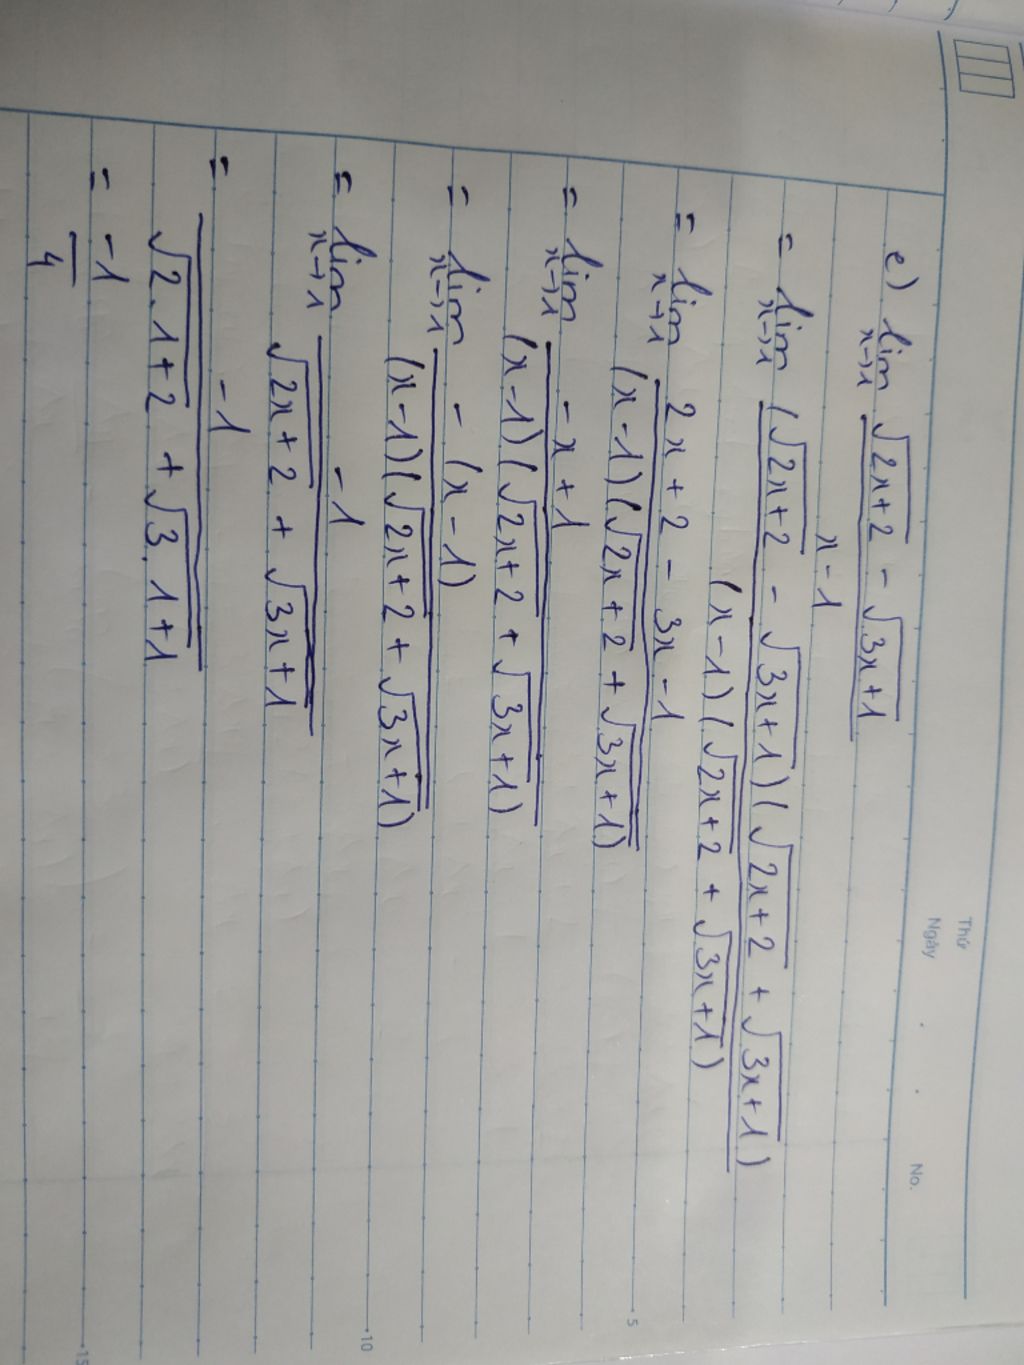 Thứ
Ngày . . No.
e) lim x→1 (√(2x+2) - √(3x+1)) / (x-1)
= lim x→1 (√(2x+2) - √(3x+1))(√(2x+2) + √(3x+1)) / (x-1)(√(2x+2) + √(3x+1))
= lim x→1 (2x+2-3x-1) / (x-1)(√(2x+2) + √(3x+1))
= lim x→1 (-x+1) / (x-1)(√(2x+2) + √(3x+1))
= lim x→1 -(x-1) / (x-1)(√(2x+2) + √(3x+1))
= lim x→1 -1 / (√(2x+2) + √(3x+1))
= -1 / (√(2.1+2) + √(3.1+1))
= -1 / 4
5
10
15